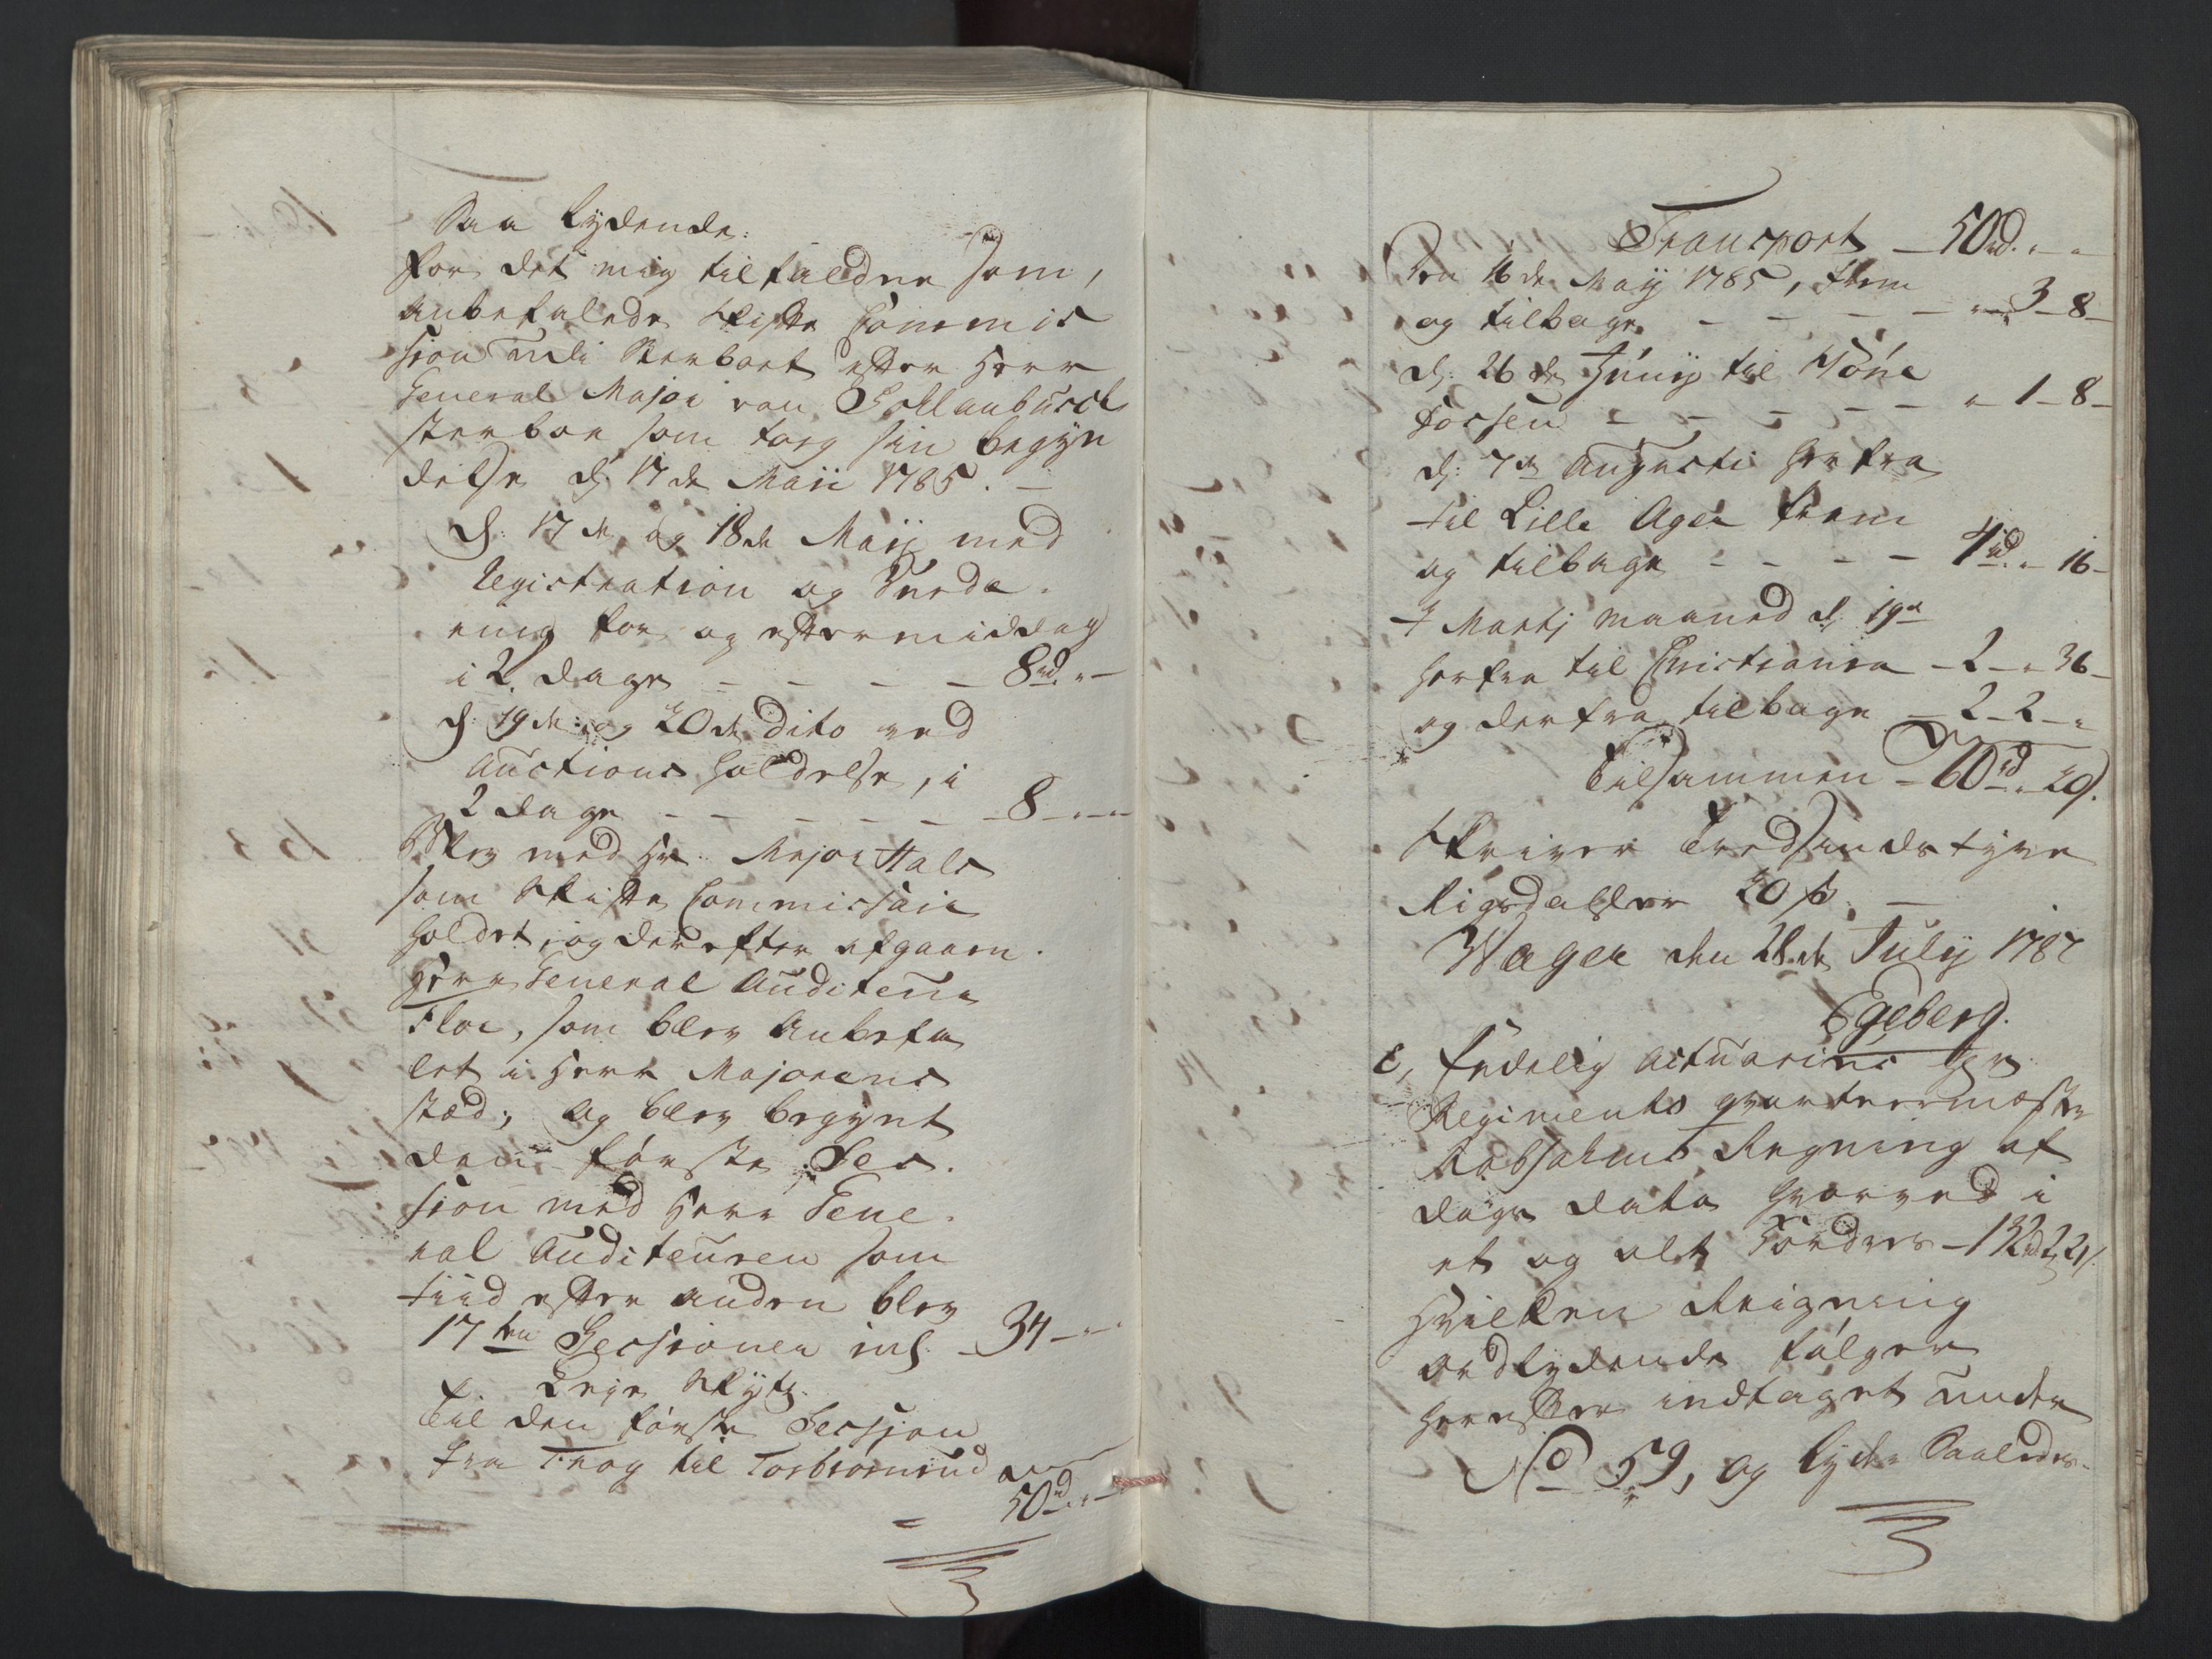 Saa lydende:
for det mig tilfaldne som,
anbefalede Skifte Commis
sion udi Sterboet efter Herr
General Major von Schlanbusch
sterboe som tog sin begyn
delse d: 17de Maii 1785. –
d: 17de og 18de Maij med
Registration og Vurde-
ring for og eftermiddag
i 2 dage – – – – 8rd. " –
d: 19de og 20de dito ved
Auctions Holdelse, i
2 dage – – – – – 8 – " –
Blev med Hr. Major Hals
som Skifte Commissair
holdet, og derefter afgaaen.
Herr General Auditeur
Flor, som blev Anbefa
let i Herr Majorens
stæd, og blev begynt
den første Ses-
sion med Herr Gene-
ral Auditeuren som
tiid efter anden blev
17ten Sessioner inds. – 34 – " –
Leje Skyds.
Til den første Session
fra Trog til Torbiørnrud
50rd. " –
Transport – 50rd. " "
den 16de Maij 1785, frem
og tilbage – – – – " 3 – 8 –
d: 26de Junij til Høne
fossen – – – – – " 1 – 8 –
d: 7de Augusti herfra
til Lille Ager frem
og tilbage – – – – 4rd. " 16 –
I Martj maaned d: 19de
herfra til Christiania – 2 – " 36 –
og derfra tilbage – 2 – 2 – "
Tilsammen – 60rd " 20 s.
Skriver Tredsindstyve
Rigsdaler 20 s. –
Wager den 28de July 1787
Egeberg.
E, Endelig Actuarius Hr.
Regiments qvarteermester
Absalons Regning af
dags dato hvorved i
et og alt fordres – 132rd 2, 21 s.
Hvilken Reigning
ordlydende følger
herefter indtaget under
No 59, og lyder Saaledes.